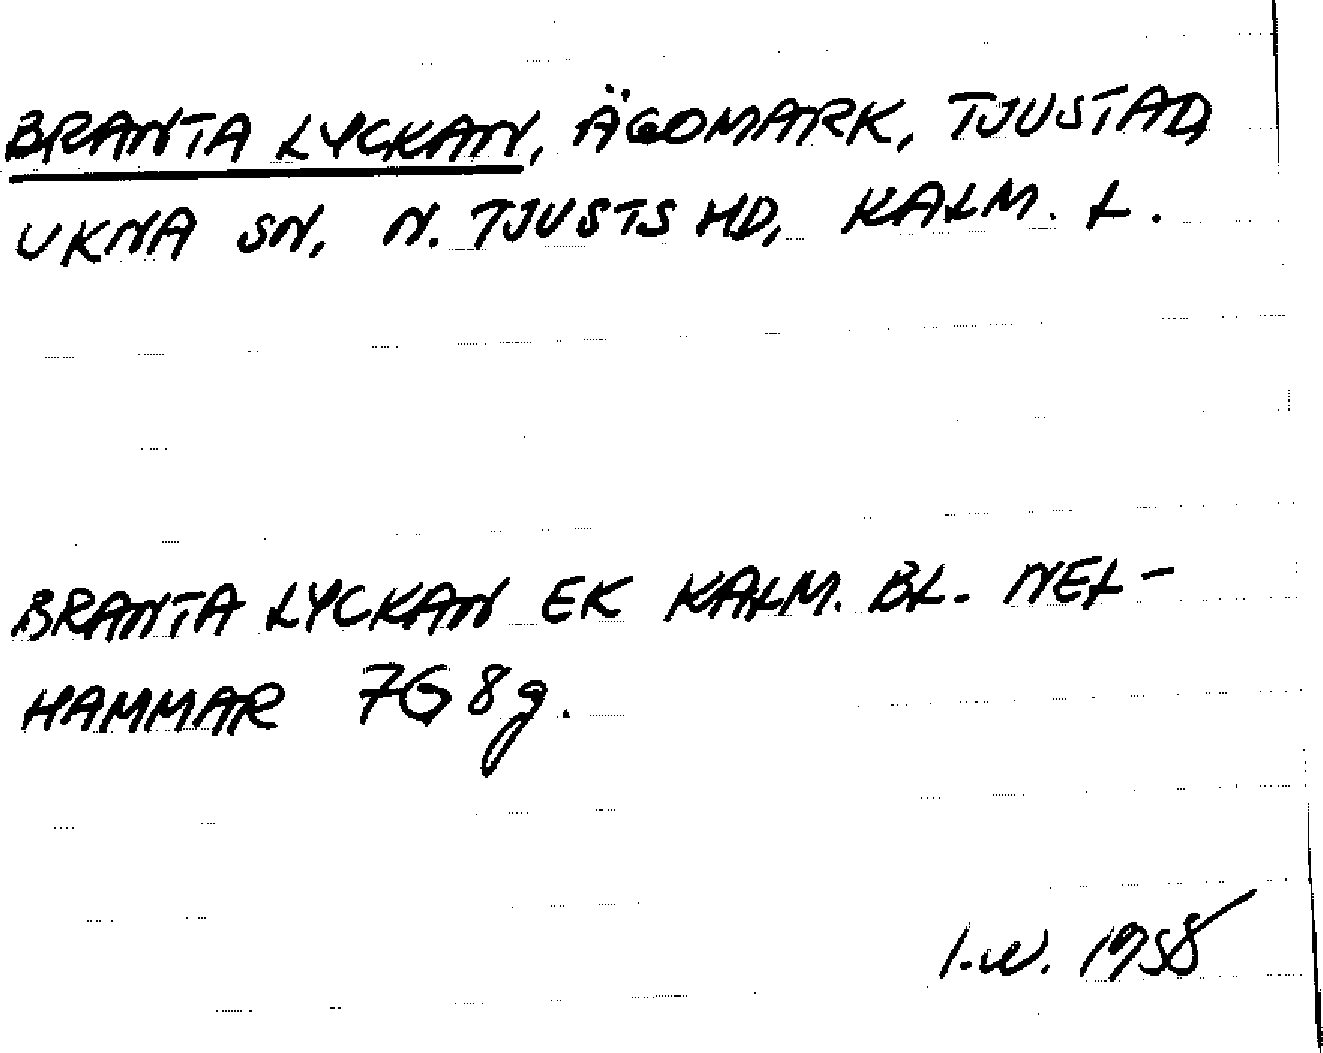 BRANTA LYCKAN, ÄGOMARK, TJUSTAD,
UKNA SN, N. TJUSTS HD, KALM. L.
BRANTA LYCKAN EK KALM. BL. NEL-
HAMMAR 7G 8g.
I.W. 1958